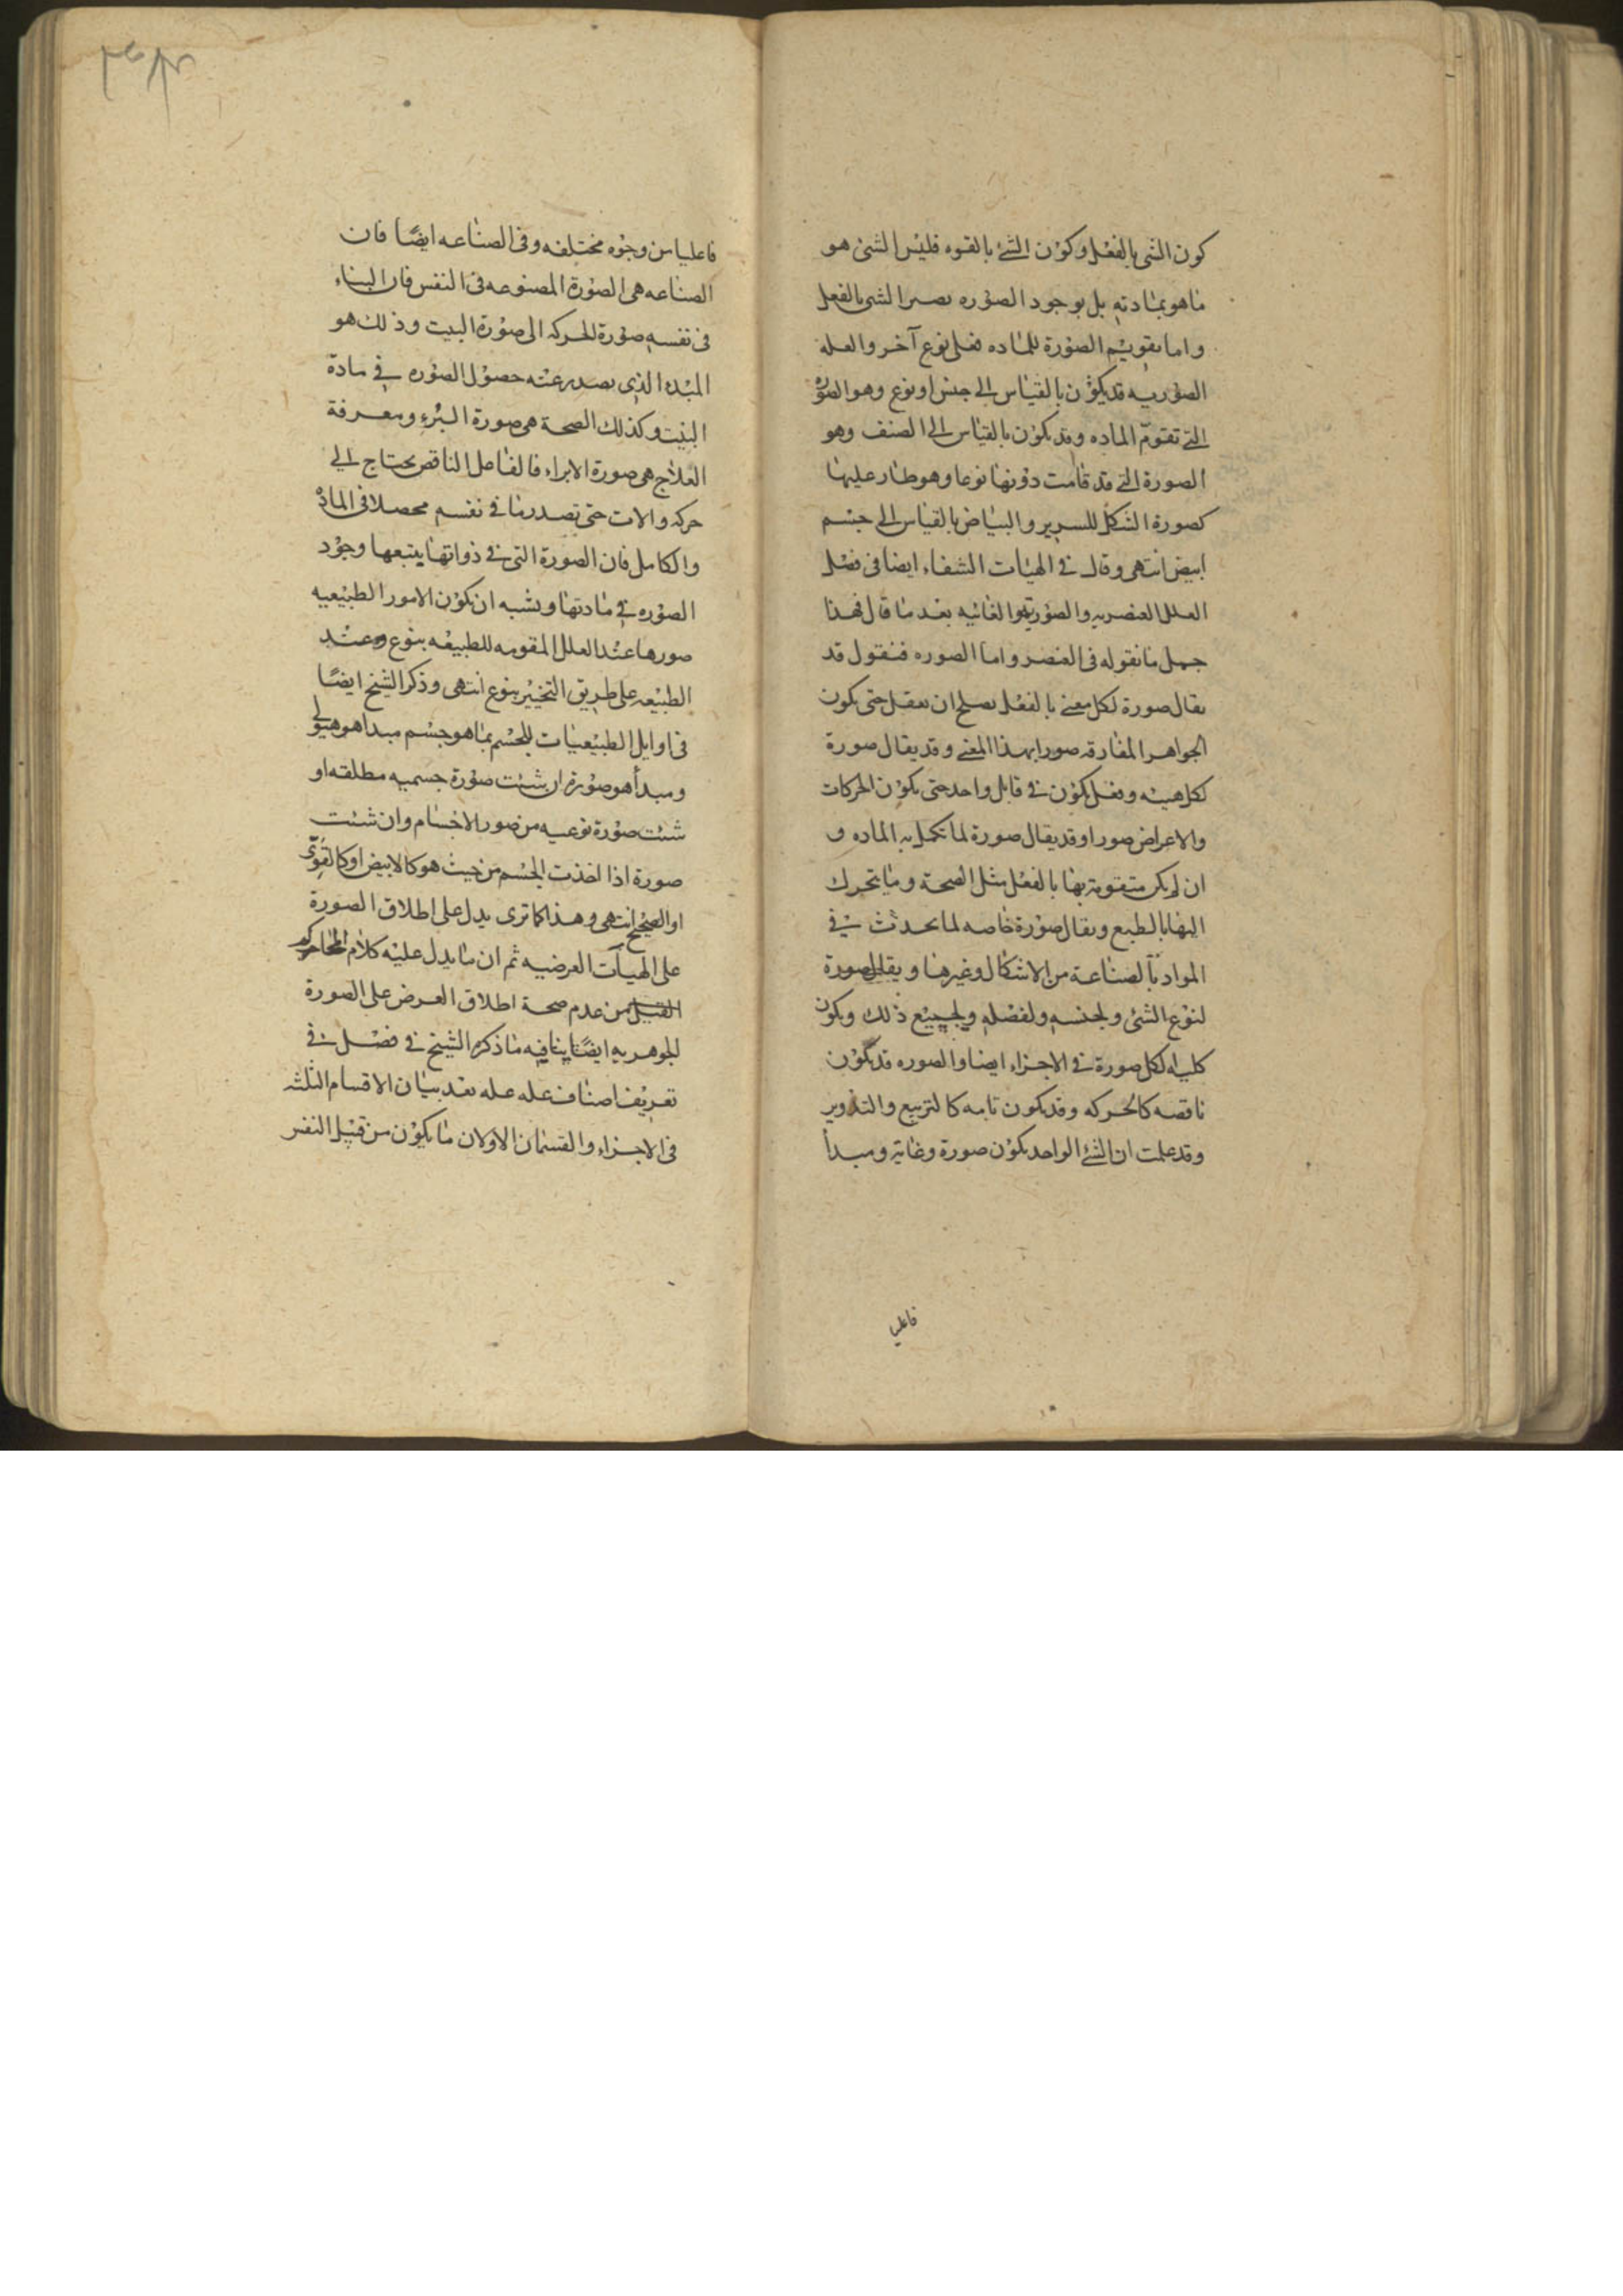 كون الشى بالفعل وكون الشئ بالقوه فليس الشئ هو
ما هو بمادته بل بوجود الصوره يصير الشى بالفعل
واما تقويم الصورة للماده فعلى نوع آخر والعله
الصوريه قد يكون بالقياس الى جنس او نوع وهو الصوره
التى تقوم الماده وقد يكون بالقياس الى الصنف وهو
الصورة التى قد قامت دونها نوعا وهو طار عليها
كصورة الشكل للسرير والبياض بالقياس الى جسم
ابيض انتهى وقال فى الهيات الشفاء ايضا فى فصل
العلل العنصريه والصوريه والغائيه بعد ما قال فهذا
جمل ما نقوله فى العنصر واما الصوره فنقول قد
يقال صورة لكل معنى بالفعل يصلح ان يعقل حتى يكون
الجواهر المفارقه صورا بهذا المعنى وقد يقال صورة
لكل هيئه وفعل يكون فى قابل واحد حتى يكون الحركات
والاعراض صورا وقد يقال صورة لما تكمل به الماده و
ان لم يكن متقومة بها بالفعل مثل الصحة وما يتحرك
اليها بالطبع ويقال صورة خاصه لما يحدث فى
المواد بالصناعة من الاشكال وغيرها ويقال صورة
لنوع الشئ ولجنسه ولفصله ولجميع ذلك ويكون
كلية لكل صورة فى الاجزاء ايضا والصوره قد يكون
ناقصه كالحركه وقد يكون تامه كالتربيع والتدوير
وقد علمت ان الشئ الواحد يكون صورة وغاية ومبدأ
فاعليا
فاعليا من وجوه مختلفه وفى الصناعه ايضًا فان
الصناعه هى الصورة المصنوعه فى النفس فان البناء
فى نفسه صورة الحركه الى صورة البيت وذلك هو
المبدء الذى يصدر عنه حصول الصوره فى مادة
البيت وكذلك الصحة هى صورة البرء ومعرفة
العلاج هى صورة الابراء فالفاعل الناقص يحتاج الى
حركه والات حتى تصدر ما فى نفسه محصلا فى المادة
والكامل فان الصورة التى فى ذواتها يتبعها وجود
الصوره فى مادتها ويشبه ان يكون الامور الطبيعيه
صورها عند العلل المقومه للطبيعه بنوع وعند
الطبيعه على طريق التخيير بنوع انتهى وذكر الشيخ ايضًا
فى اوايل الطبيعيات للجسم بما هو جسم مبدا هو هيولى
ومبدأ هو صورة ان شئت صورة جسميه مطلقه او
شئت صورة نوعيه من صور الاجسام وان شئت
صورة اذا اخذت الجسم من حيث هو كالابيض او كالقوىّ
او الصحيح انتهى وهذا كما ترى يدل على اطلاق الصورة
على الهيآت العرضيه ثم ان ما يدل عليه كلام
من عدم صحة اطلاق العرض على الصورة
الجوهريه ايضًا ينافيه ما ذكره الشيخ فى فصل فى
تعريف اصناف عله عله بعد بيان الاقسام الثلثه
فى الاجزاء والقسمان الاولان ما يكون من قبل النفس